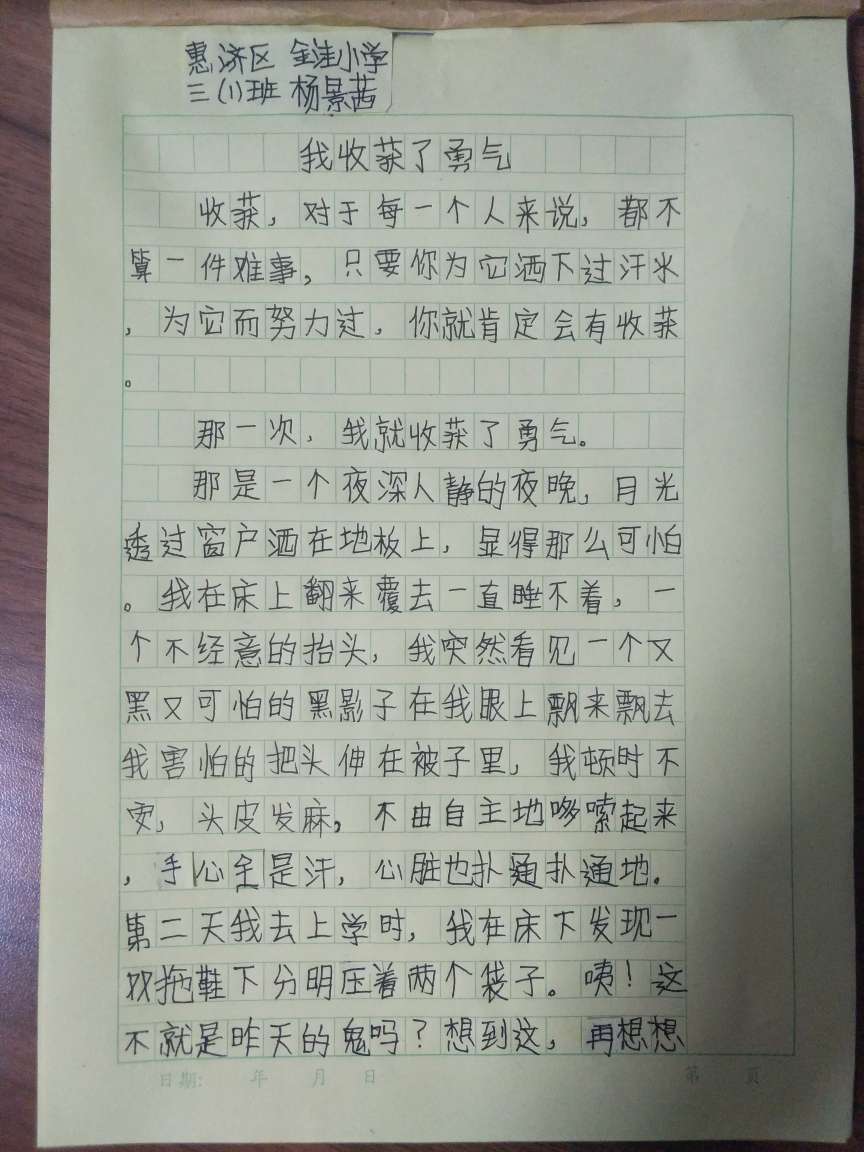 惠济区 金洼小学
三(1)班 杨景茜
我收获了勇气
收获，对于每一个人来说，都不
算一件难事，只要你为它洒下过汗水
，为它而努力过，你就肯定会有收获
。
那一次，我就收获了勇气。
那是一个夜深人静的夜晚，月光
透过窗户洒在地板上，显得那么可怕
。我在床上翻来覆去一直睡不着，一
个不经意的抬头，我突然看见一个又
黑又可怕的黑影子在我眼上飘来飘去
我害怕的把头伸在被子里，我顿时不
安，头皮发麻，不由自主地哆嗦起来
，手心全是汗，心脏也扑通扑通地.
第二天我去上学时，我在床下发现一
双拖鞋下分明压着两个袋子。咦！这
不就是昨天的鬼吗？想到这，再想想
日期： 年 月 日 第 页